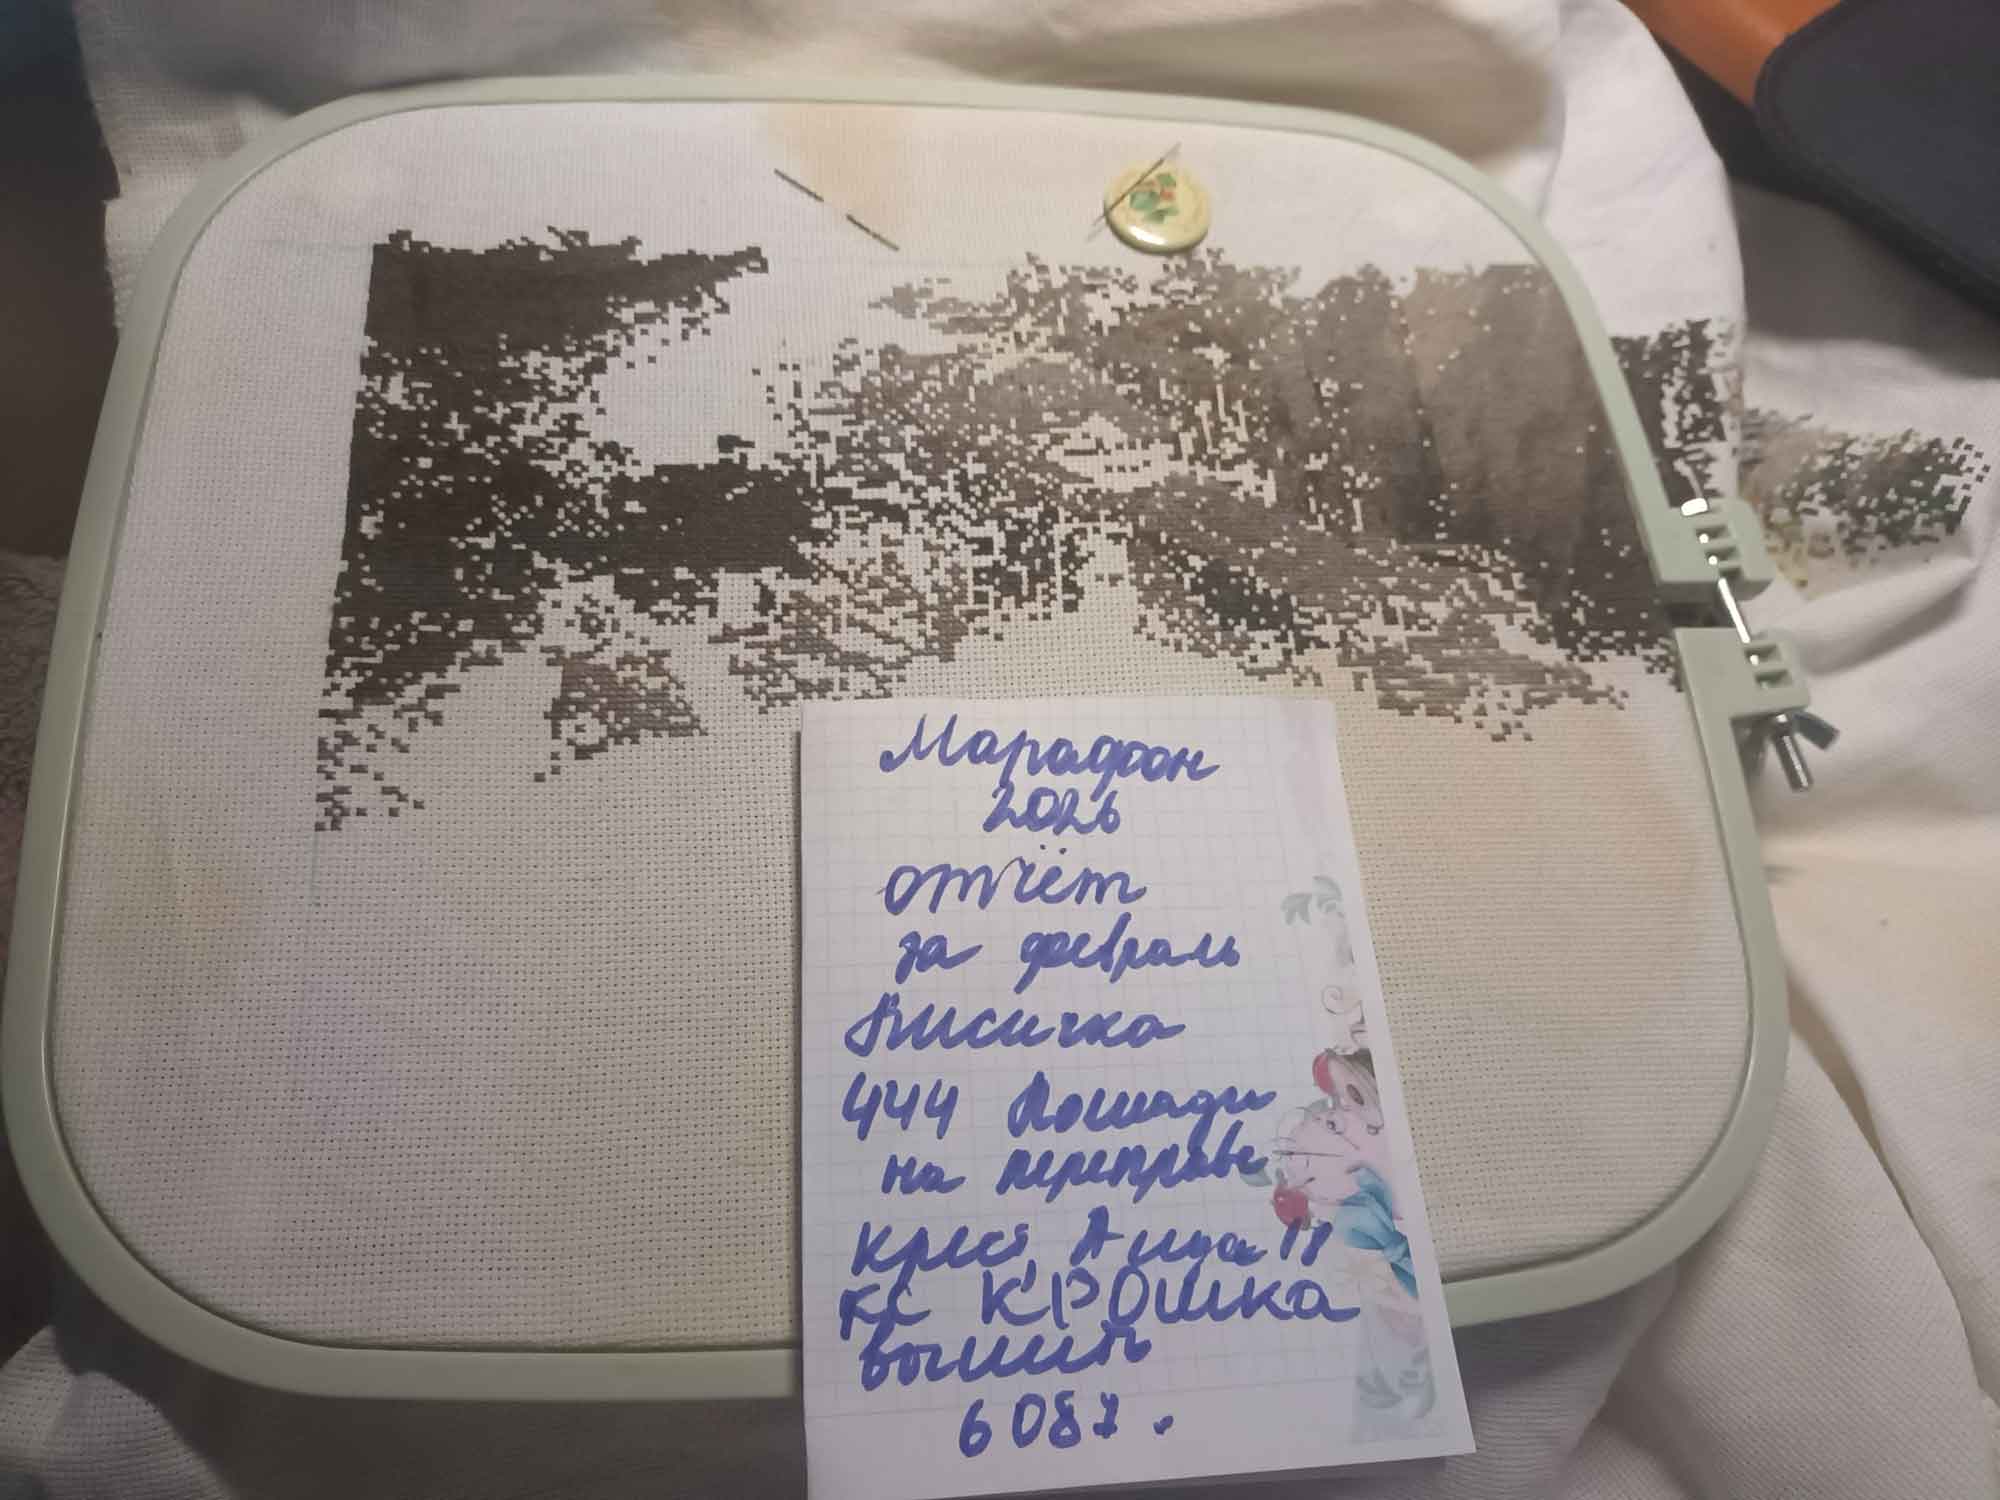 Марафон
2026
отчёт
за февраль
Лисичка
444 Лошади
на переправе
крест Аида 18
КС КРОШКА
вышить
6087.